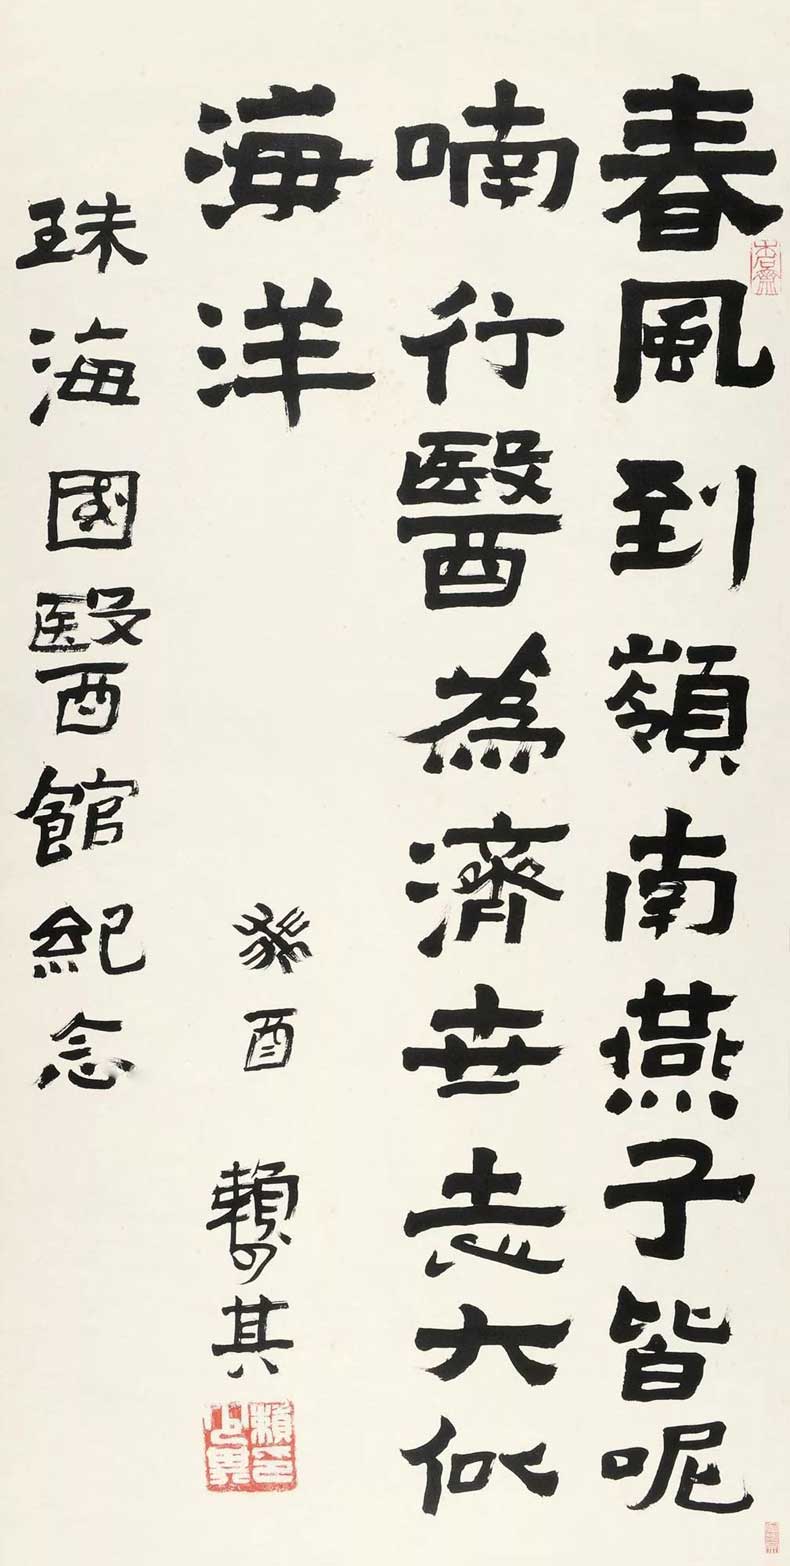 春風到嶺南燕子皆呢
喃行醫為濟世志大似
海洋
癸酉 賴少其
珠海國醫館紀念
木石齋
賴少其印